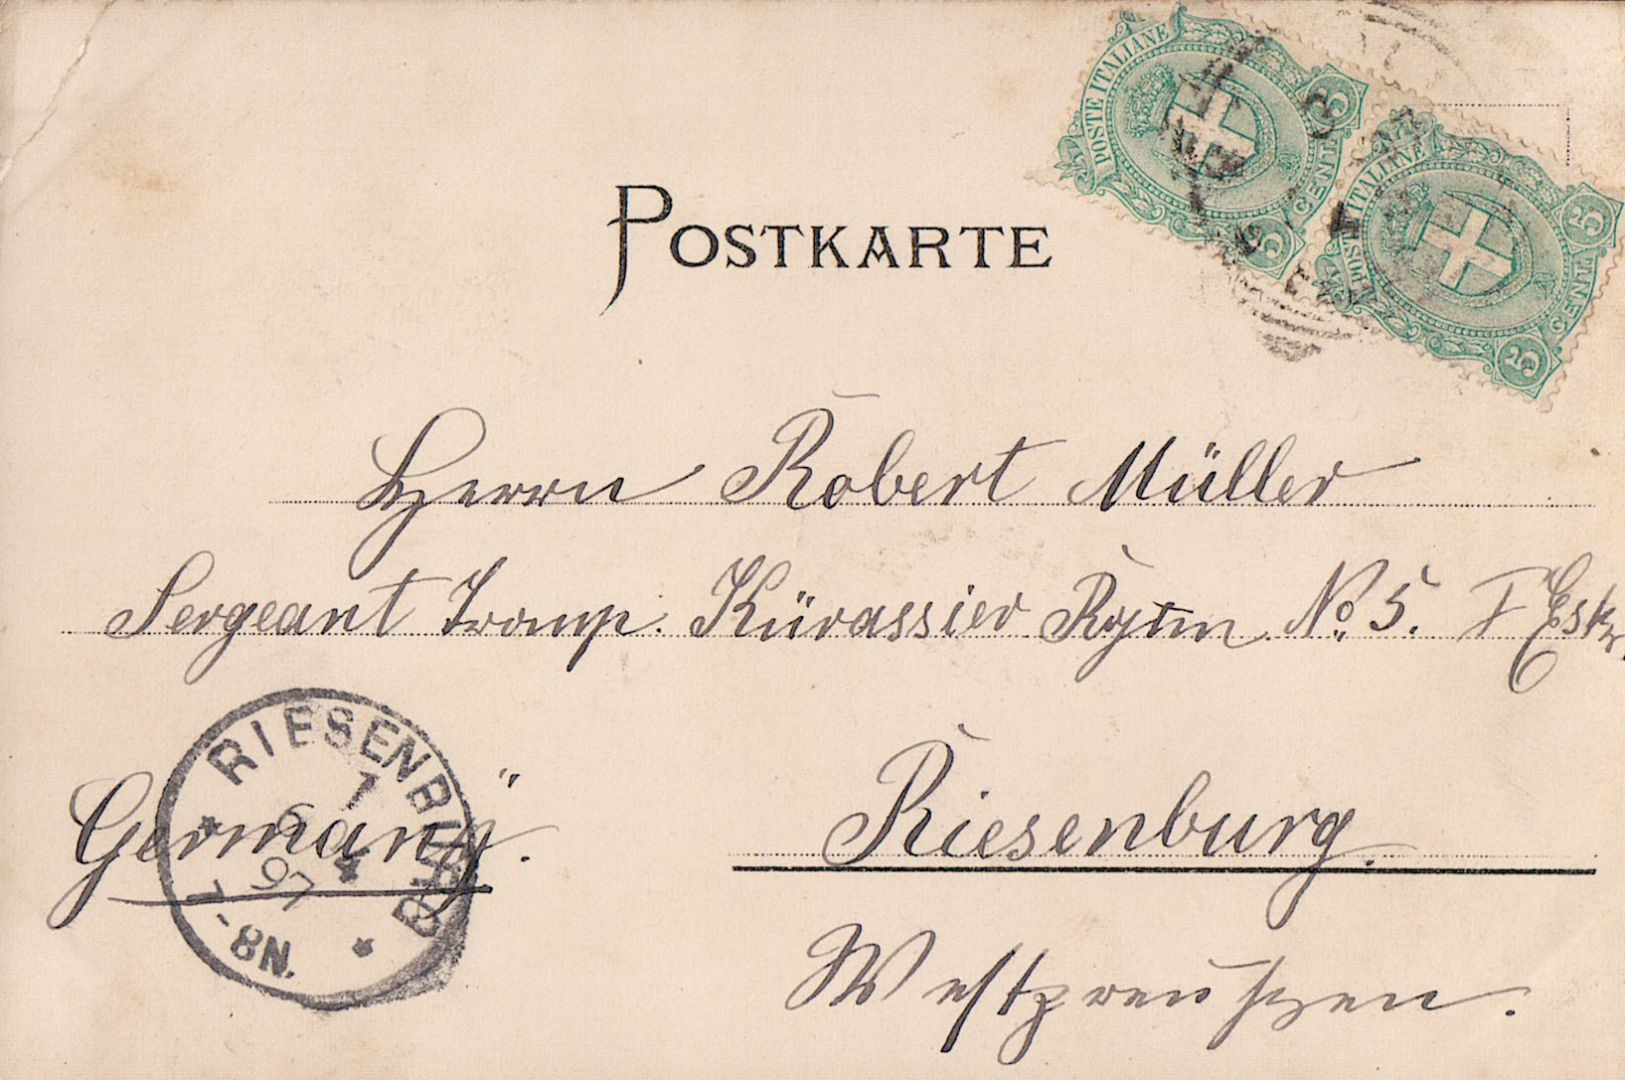 POSTE ITALIANE
CENT. 5
5
POSTE ITALIANE
CENT. 5
5
POSTKARTE
Herrn Robert Müller
Sergeant Tromp. Kürassier Rgtm No. 5. I Esk.
RIESENBURG
1
4
97
7-8N.
Germany.
Riesenburg.
Westpreußen.